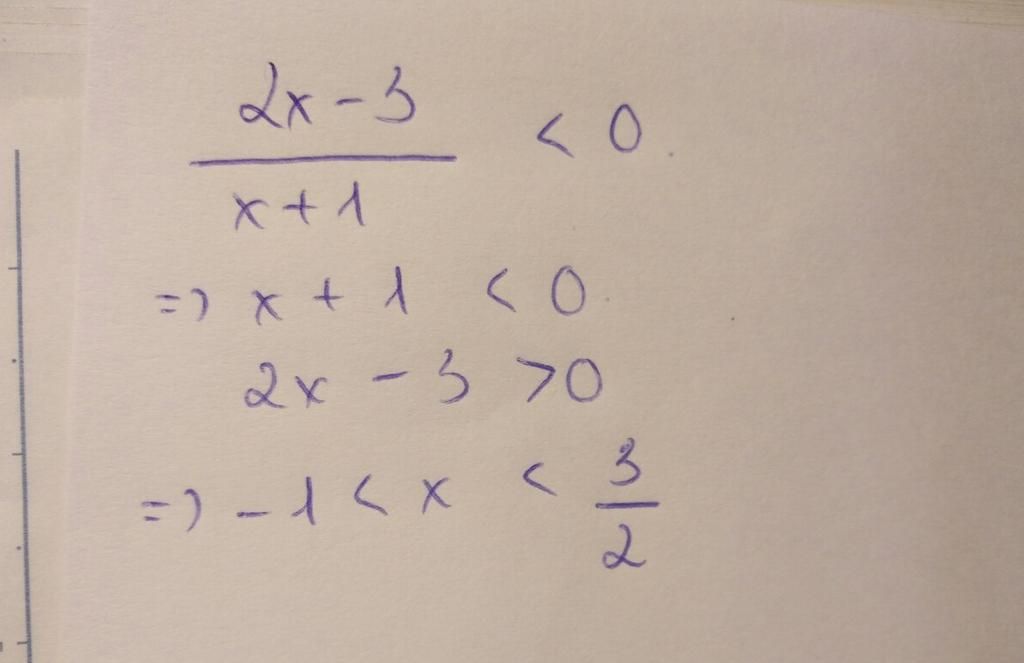 2x - 3
x + 1
< 0
=> x + 1 < 0
2x - 3 > 0
=> -1 < x < 3/2